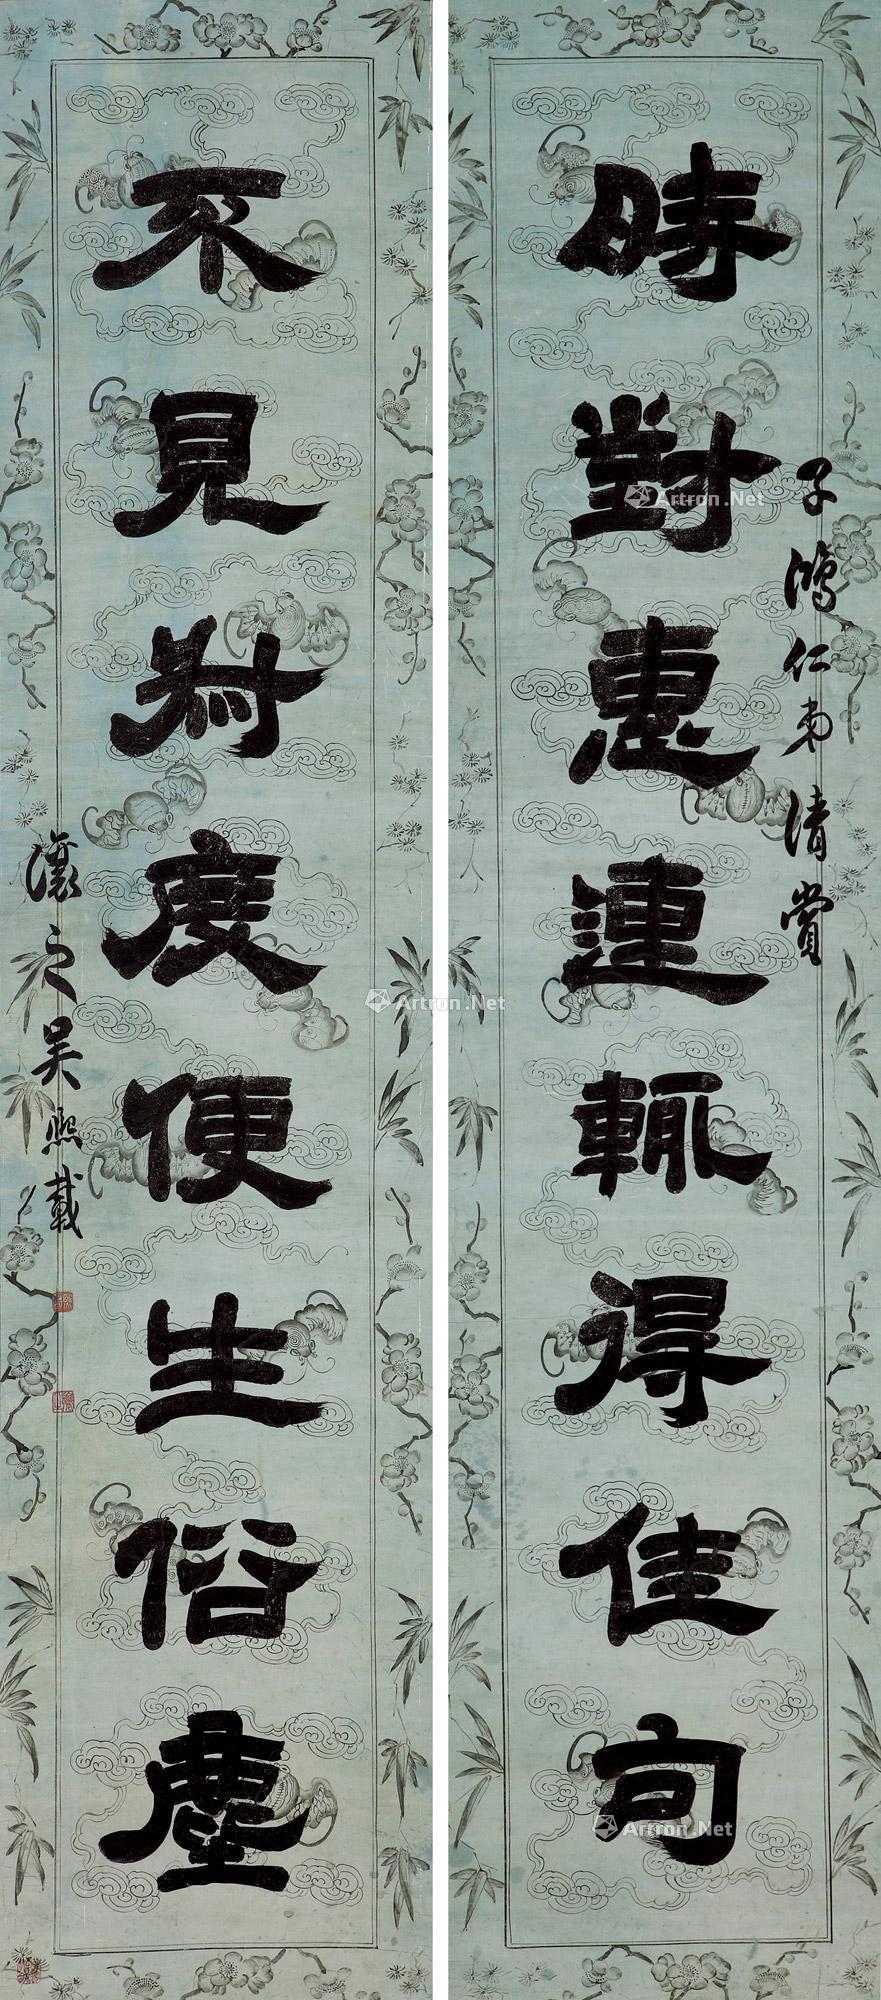 子鴻仁弟清賞
時對惠連輒得佳句
不見叔度便生俗塵
讓之吳熙載
Artron.Net
Artron.Net
Artron.Net